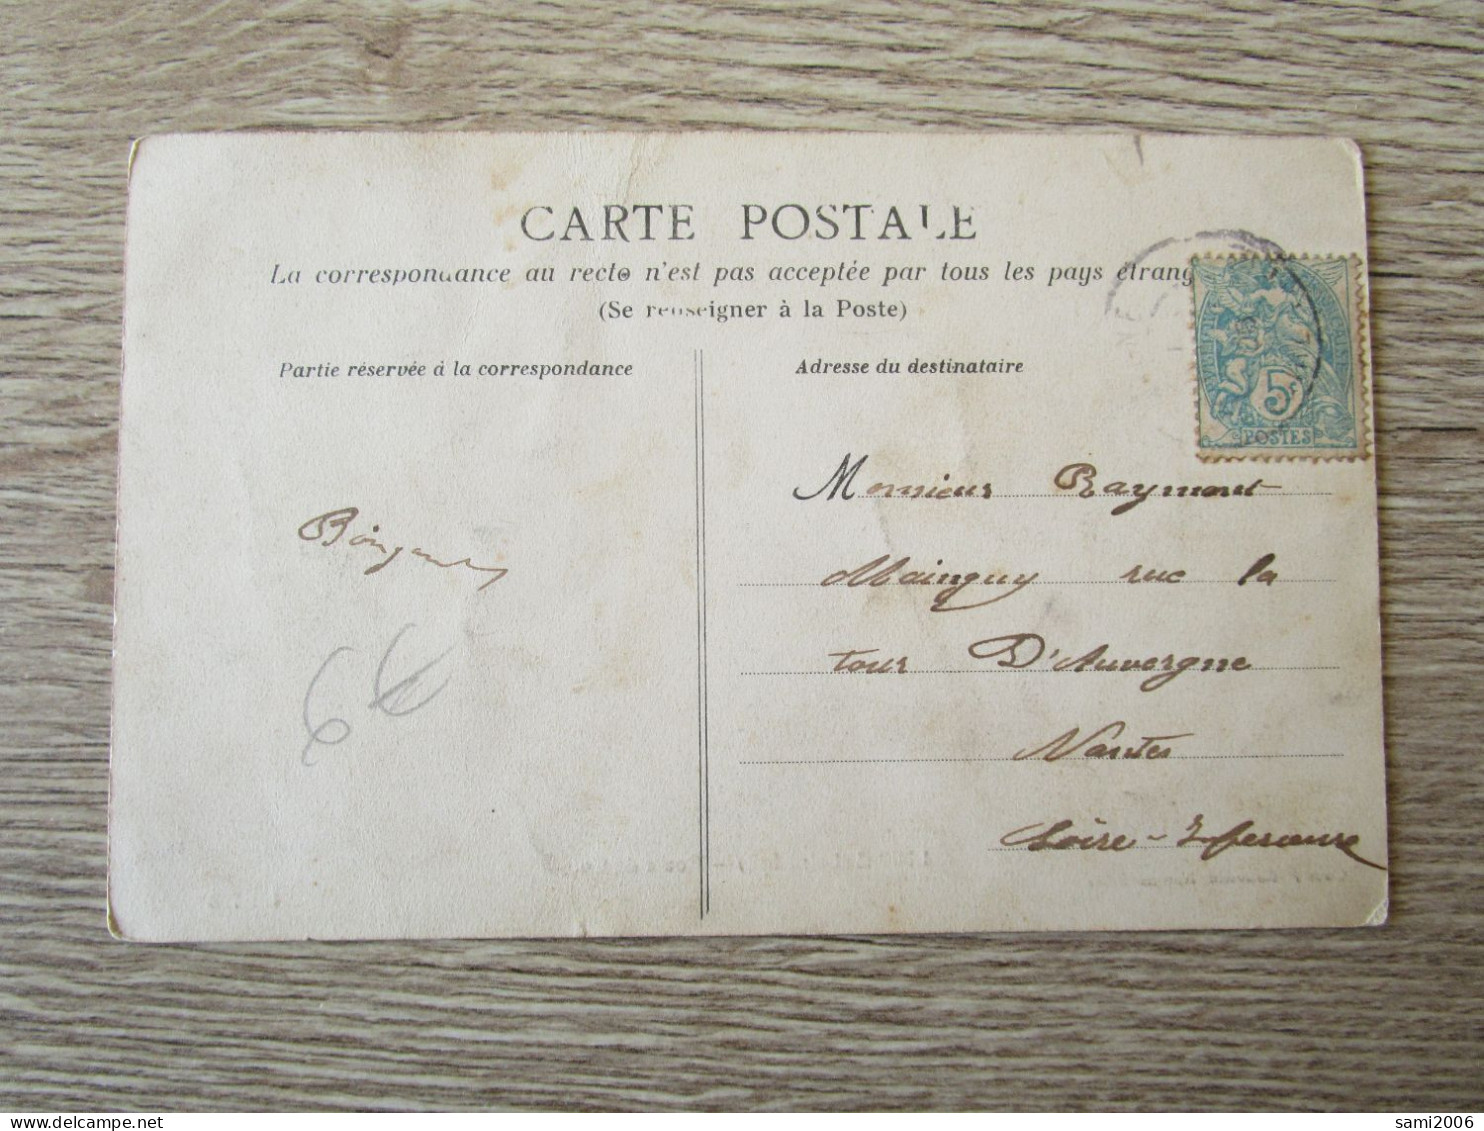 CARTE POSTALE
La correspondance au recto n'est pas acceptée par tous les pays étrang
(Se renseigner à la Poste)
Partie réservée à la correspondance
Adresse du destinataire
5
POSTES
Monsieur Raymont
Mainguy rue la
tour D'Auvergne
Nantes
Loire-Inferieure
6€
sami2006